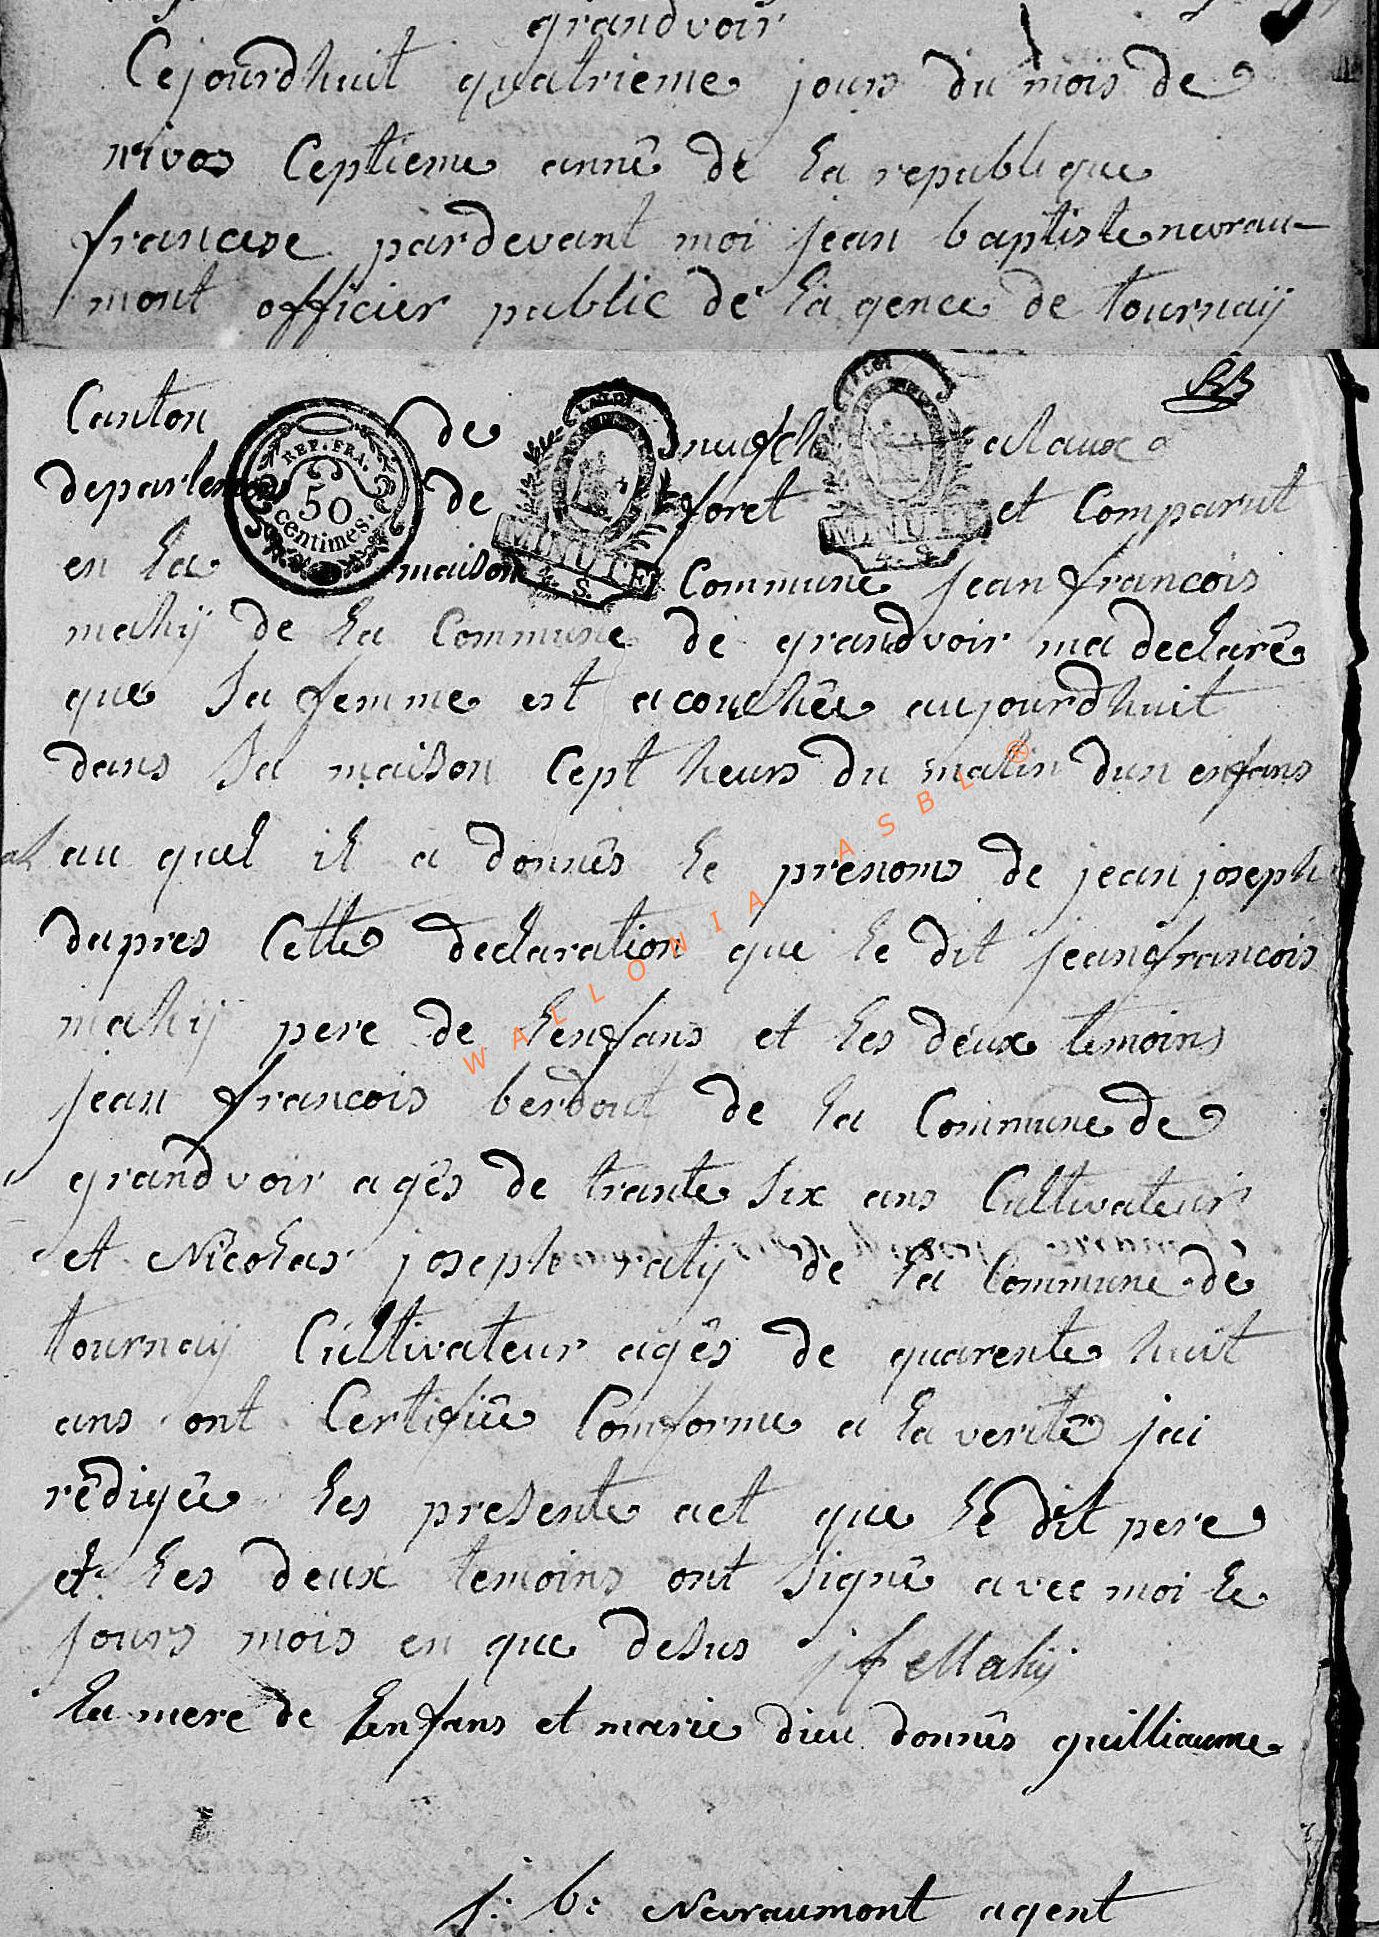 grandvoir
Cejourdhuit quatrieme jours du mois de
nivos Ceptieme annê de la republique
francese pardevant moi jean baptiste nevrau-
mont officier public de la gence de tournaÿ
Canton de neufch ataux
departement de foret et Comparut
en la maison Commune jean francois
mahÿ de la Commune de grandvoir ma declarê
que sa femme est acouchêe aujourdhuit
dans sa maison Cept heurs du matin dun enfans
au quel il a donnês le prenoms de jean joseph
dapres Cette declaration que le dit jean francois
mahÿ pere de lenfans et les deux temoins
jean francois berdout de la Commune de
grandvoir agês de trante six ans Cultivateur
et Nicolas joseph ratÿ de la Commune de
tournaÿ Cultivateur agês de quarente huit
ans ont Certifiêe Comforme a la veritê jai
rêdigêe les presente act que le dit pere
et les deux temoins ont signê avec moi le
jours mois en que desus j f Mahÿ
la mere de lenfans et marie dieu donnês guilliaume
j: b: Nevraumont agent
REP. FRA.
50
centimes.
LA LOI
MINUTE
4. S.
LA LOI
MINUTE
4. S.
WALLONIA ASBL ®